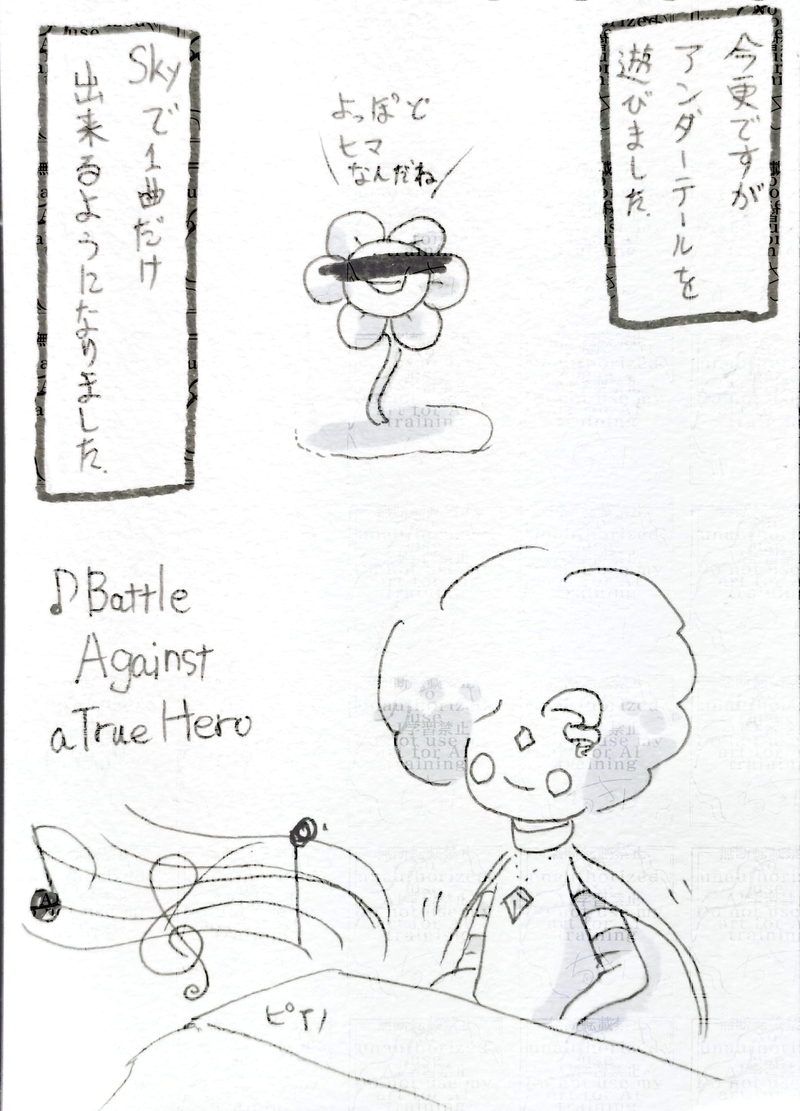 今更ですが
アンダーテールを
遊びました
よっぽど
ヒマ
なんだね
Skyで1曲だけ
出来るようになりました
♪Battle
Against
a True Hero
ピアノ